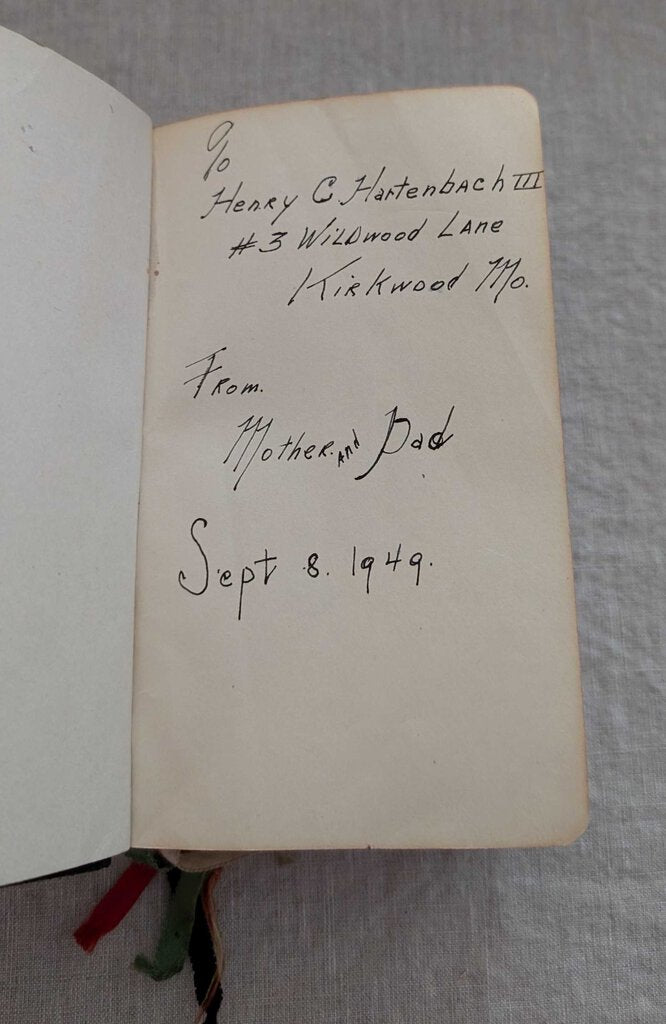 To
Henry C Hartenbach III
#3 Wildwood Lane
Kirkwood Mo.
From.
Mother. and Dad
Sept 8. 1949.